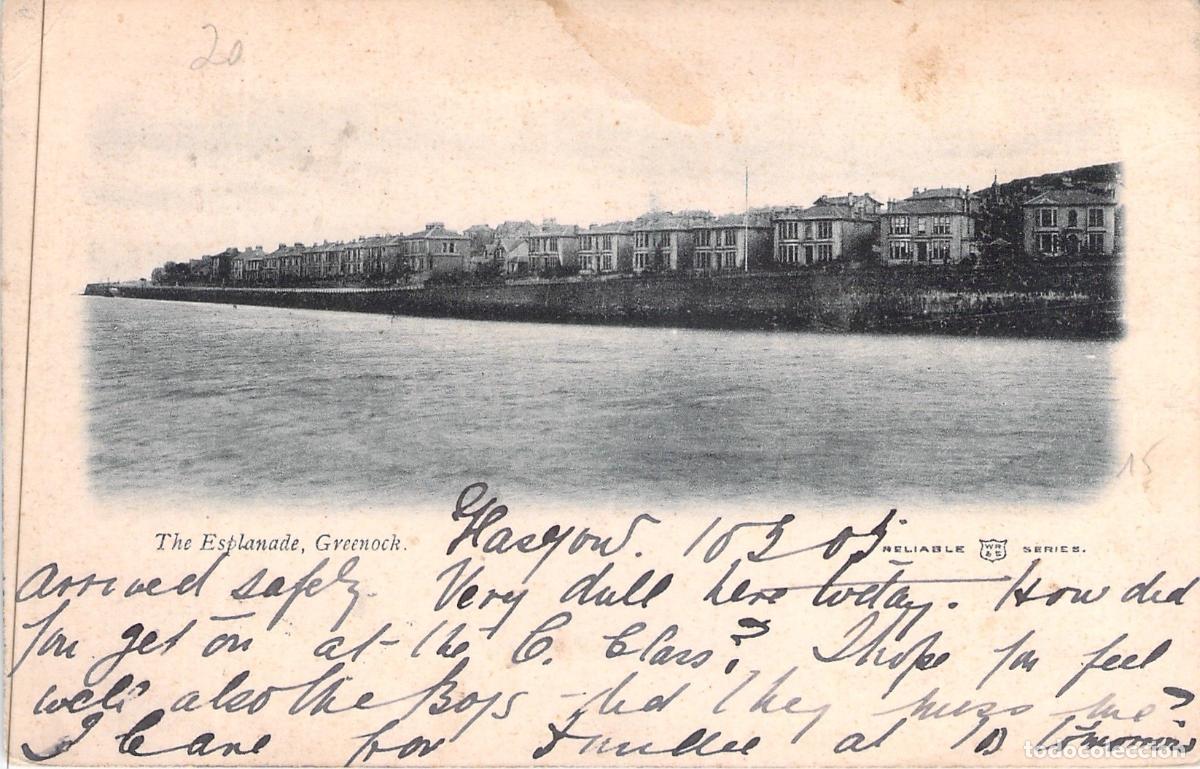 20
15
The Esplanade, Greenock.
Glasgow. 10 3 03
RELIABLE WR & S SERIES.
Arrived safely. Very dull here today. How did
you get on at the C. Class? I hope you feel
well also the Boys - did they miss me?
I leave for Dundee at 10
todocoleccion